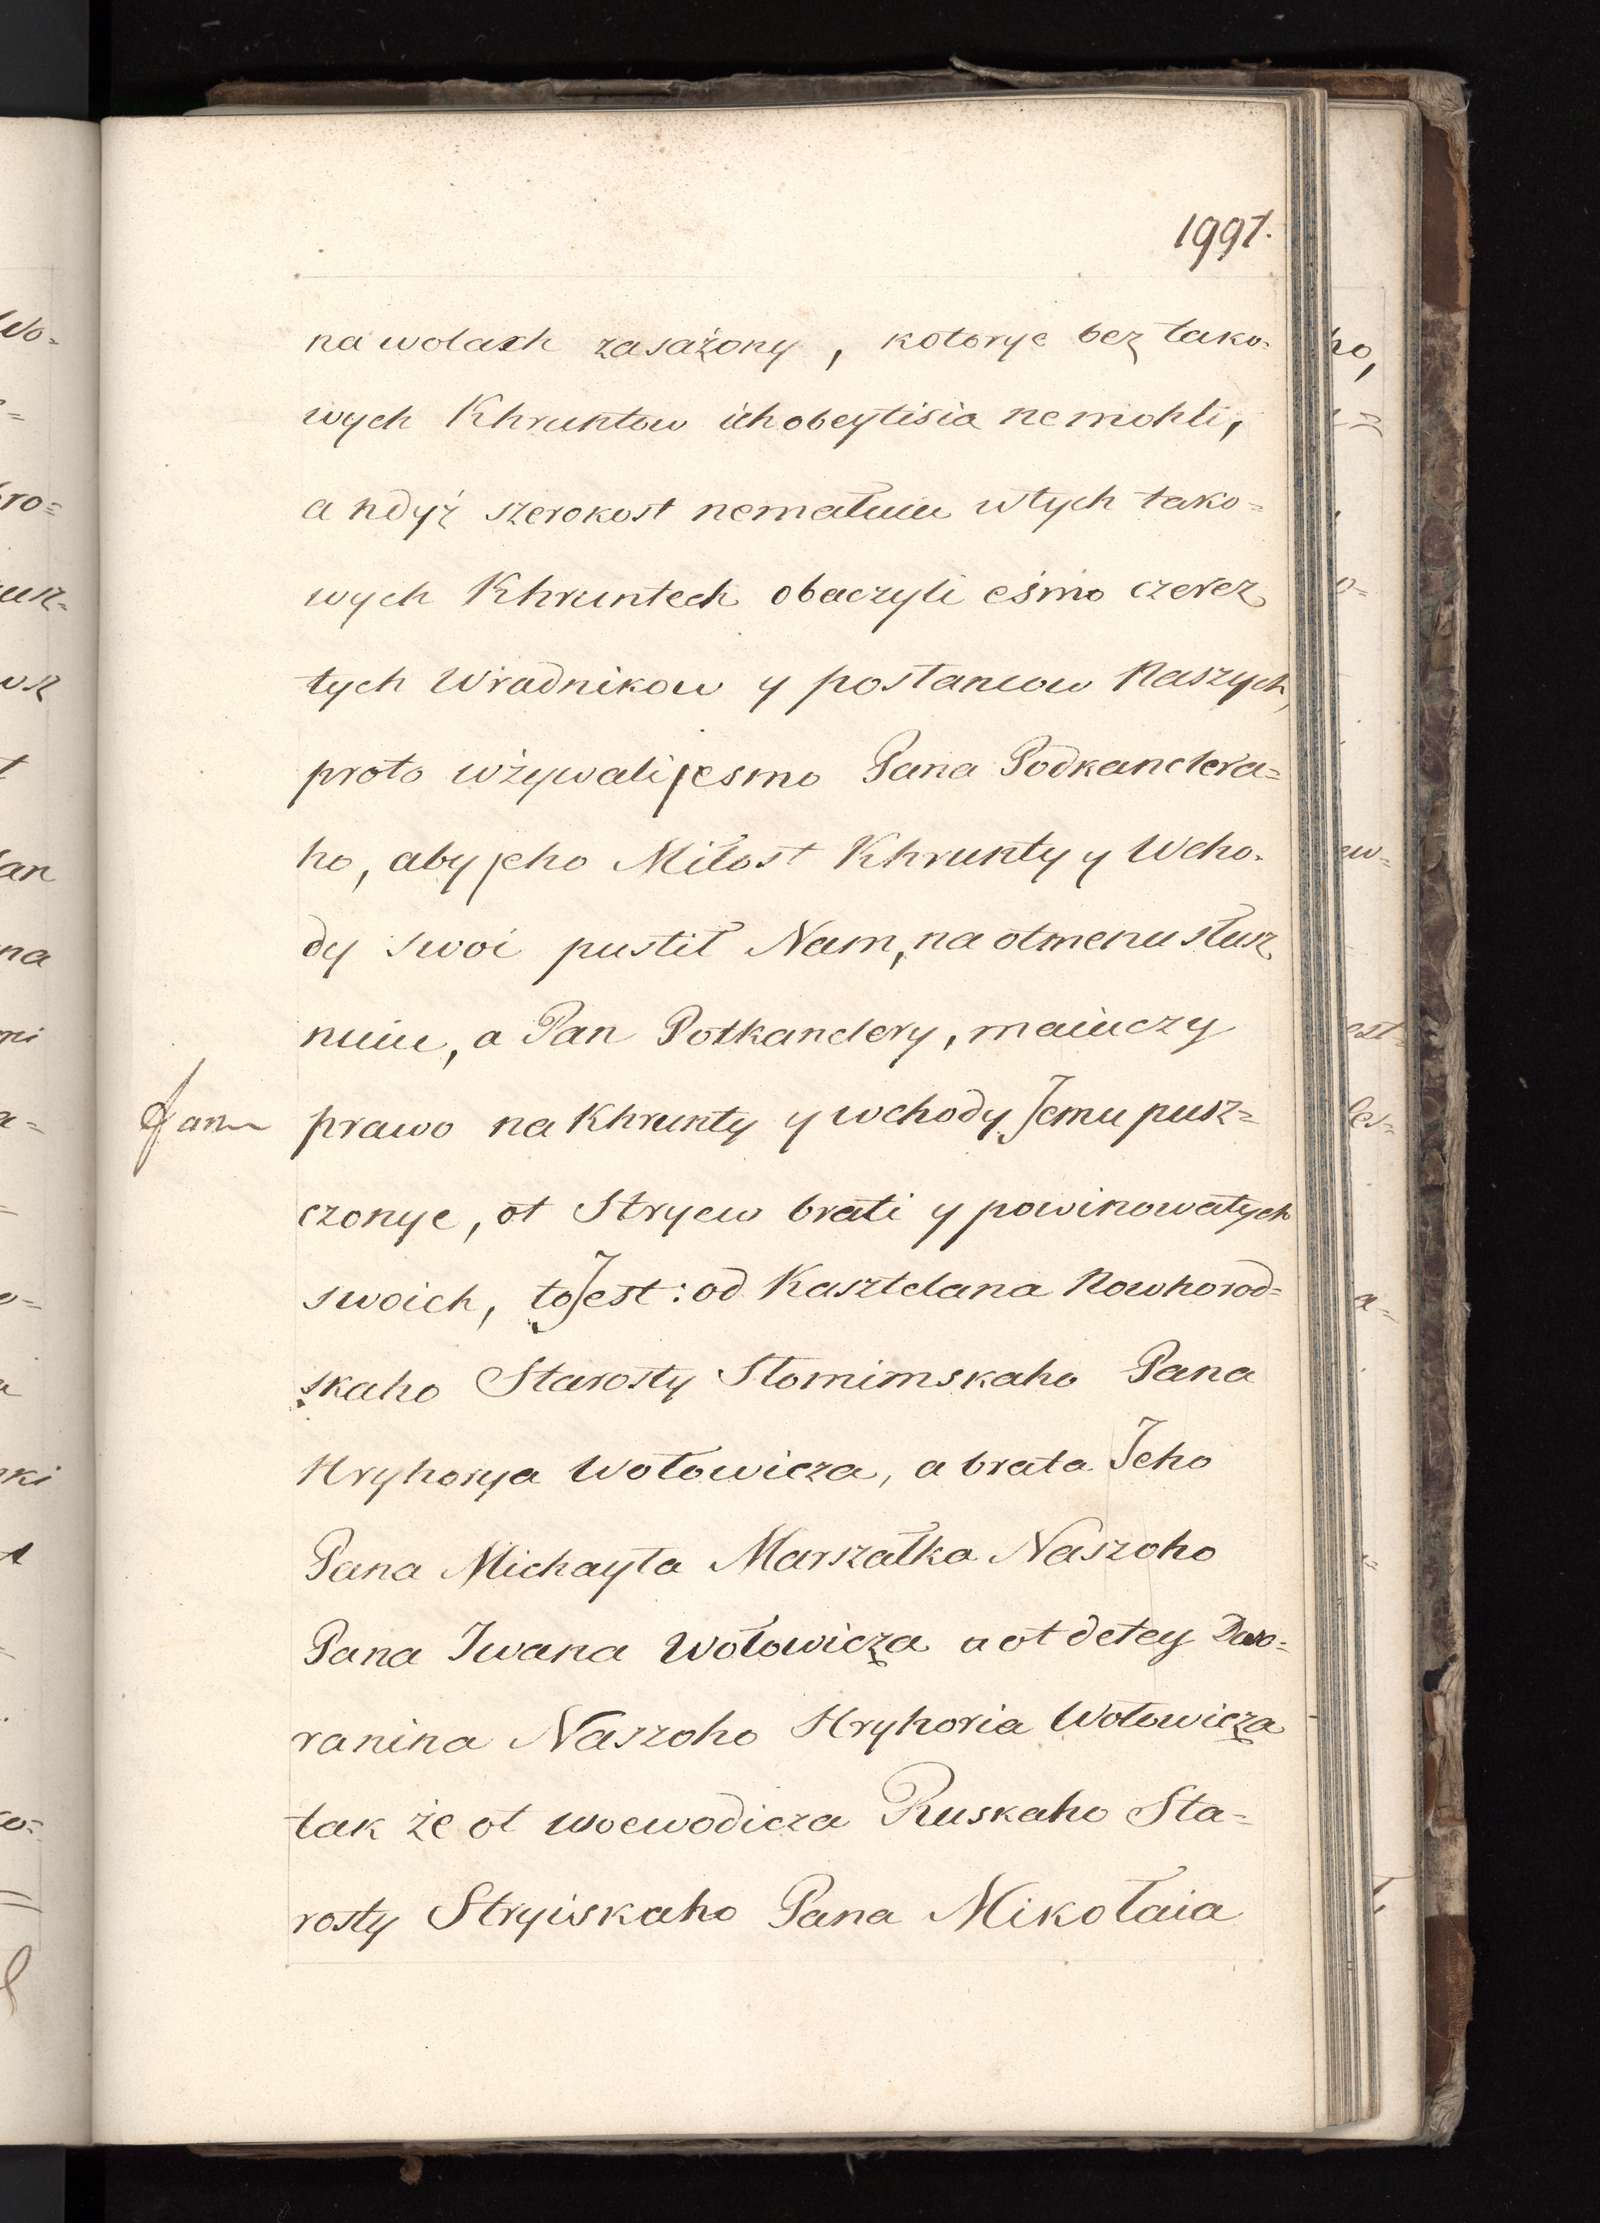 1997.
na wolach zasażony, kotorye bez tako-
wych Khruntow ich obeytisia ne mohli,
a hdyż szerokost nemałuiu w tych tako=
wych Khruntech obaczyli eśmo czerez
tych Wradnikow y posłancow Naszych,
proto wżywali jesmo Pana Podkanclera=
ho, aby jeho Miłost Khrunty y Wcho-
dy swoi pustił Nam, na otmenu słusz
nuiu, a Pan Potkanclery, maiuczy
prawo na Khrunty y wchody Jemu pusz=
czonye, ot Stryew brati y powinowatych
swoich, to Jest: od Kasztelana Nowhorod=
skaho Starosty Słonimskaho Pana
Hryhorya Wołowicza, a brata Jeho
Pana Michayła Marszałka Naszoho
Pana Iwana Wołowicza a ot detey Dwo=
ranina Naszoho Hryhoria Wołowicza
tak że ot woewodicza Ruskaho Sta=
rosty Stryiskaho Pana Mikołaia